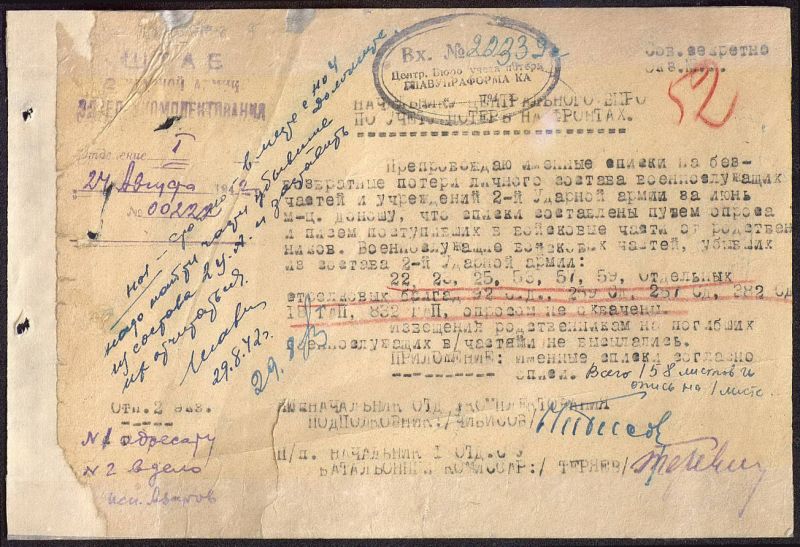 ШТАБ
2 Ударной Армии
Отделение I
24 Августа 1942
№ 0022
Вх. № 22239с
Центр. Бюро учета потерь
ГЛАВУПРАФОРМА КА
Сов.секретно
52
НАЧАЛЬНИКУ ЦЕНТРАЛЬНОГО БЮРО
ПО УЧЕТУ ПОТЕРЬ НА ФРОНТАХ.
Препровождаю именные списки на без-
возвратные потери личного состава военнослужащих
частей и учреждений 2-й Ударной армии за июнь
м-ц. Доношу, что списки составлены путем опроса
и писем поступивших в войсковые части от родствен
ников. Военнослужащие войсковых частей, убывших
из состава 2-й Ударной армии:
22, 23, 25, 53, 57, 59, Отдельных
стрелковых бригад 92 С.Д., 259 СД, 267 СД, 382 СД
18 ГАП, 832 ГАП, опросом не охвачены.
Извещения родственникам на погибших
военнослужащих в/частями не высылались.
ПРИЛОЖЕНИЕ: именные списки согласно
описи. Всего 158 листов и
опись на 1 листе.
надо найти части убывшие
из состава 2 У.А. и заставить
их отчитаться.
29.8.42г.
29.8
Отп. 2 экз.
№ 1 адресату
№ 2 в дело
исп.
НАЧАЛЬНИК ОТД. УКОМПЛЕКТОВАНИЯ
ПОДПОЛКОВНИК:/ЧИБИСОВ/
П/п. НАЧАЛЬНИК I ОТД.
БАТАЛЬОННЫЙ КОМИССАР:/ ТЕРЯЕВ/